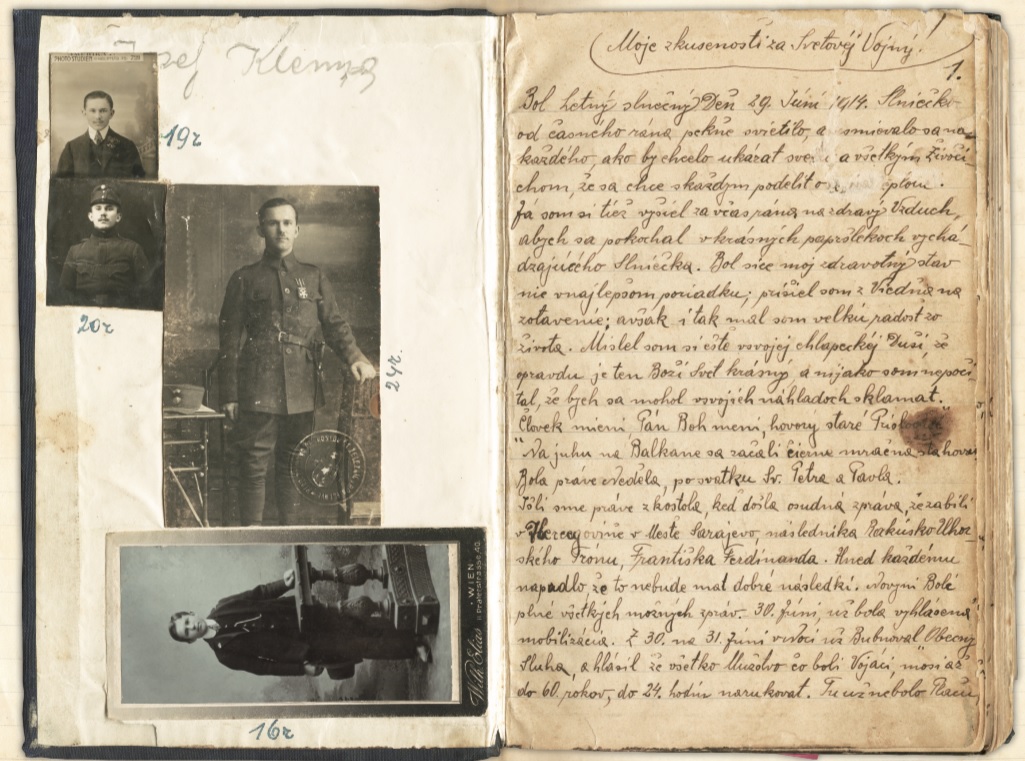 Josef Klempa
PHOTO STUDIER
19r
20r
24r.
WIEN
II. Praterstrasse 40.
Wilh. Elias
16r
Moje zkusenosti za Svetovéj Vojny!
1.
Bol Letný slnečný Deň 29. Júni 1914. Slniečko
od časného rána pekne svietilo, a usmievalo sa na
každého, ako by chcelo ukázat svetu a všetkým Živoči-
chom, že sa chce skaždym podelit
Já som si tiež vyšiel za včas rána na zdravý Vzduch,
abych sa pokochal v krásných papršlekoch vychá-
dzajúcého Slniečka. Bol sice moj zdravotný stav
nie vnajlepšom poriadku; prišiel som z Viedňa na
zotavenie; avšák i tak mal som velkú radost zo
života. Mislel som si ešte vsvojej chlapeckéj Duši, že
opravdu je ten Boži Svet krásny, a nijako som nepoči-
tal, že bych sa mohol vsvojich náhladoch sklamat.
Človek mieni, Pán Boh meni, hovory staré
"Na juhu na Balkane sa začali čierne mračná stahovat
Bola práve Nedela, po svatku Sv. Petra a Pavla.
Išli sme práve z kostola, ked došla osudná zpráva, že zabili
v Hercegovine v Meste Sarajevo, následnika Rakúsko Uhor-
ského Trónu, Františka Ferdinanda. Hned každému
napadlo že to nebude mat dobré následki. Noviny Bolé
plné všetkých možnych zpráv. 30. Júni, už bola vyhlásená
mobilizácia. Z 30. na 31. Júni vnoci už Bubnoval Obecny
Sluha, a hlásil že všetko Mužstvo čo boli Vojáci, mosi až
do 60. rokov, do 24. hodin narukovat. Tu už nebolo Plaču,